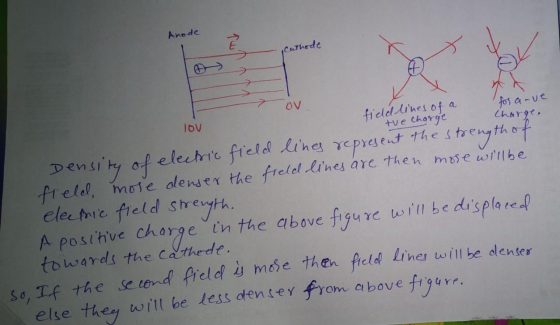 Anode
E
Cathode
+
+
-
10V
0V
field lines of a
+ve charge
for a -ve
charge.
Density of electric field lines represent the strength of
field, more denser the field lines are then more will be
electric field strength.
A positive charge in the above figure will be displaced
towards the cathode.
So, If the second field is more then field lines will be denser
else they will be less denser from above figure.